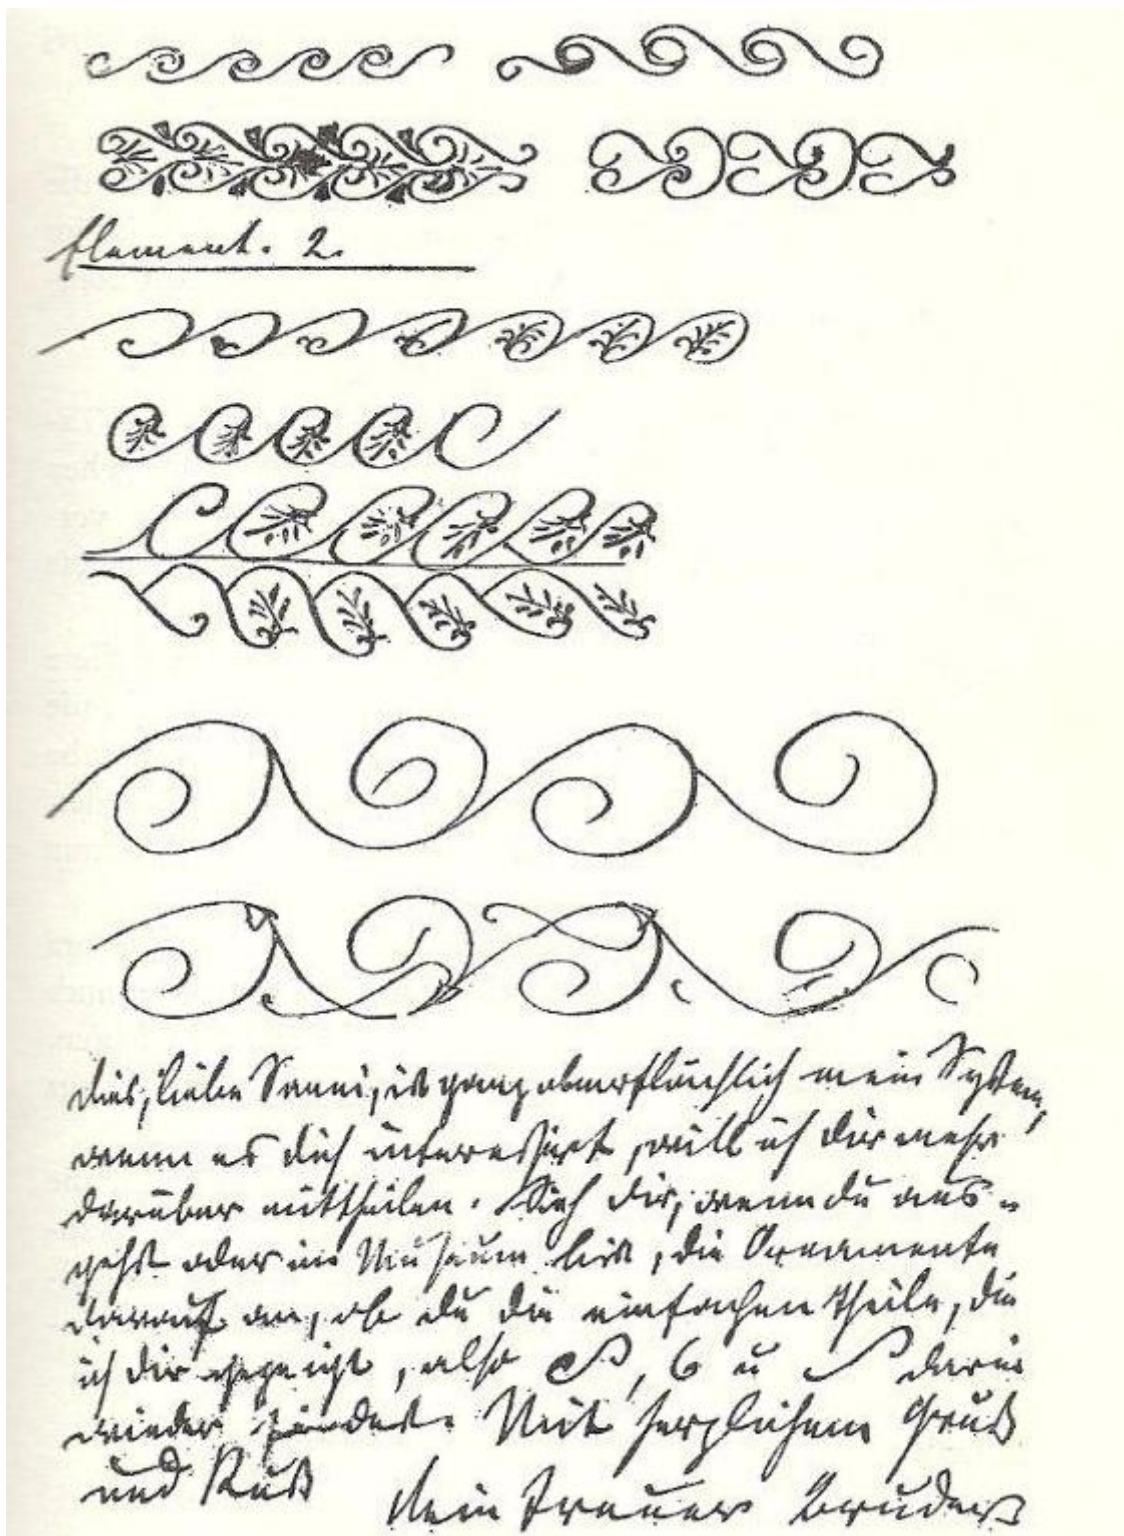 Element. 2.
dies, liebe Nanni, ist ganz oberflächlich mein System,
wenn es dich interessirt, will ich dir mehr
darüber mittheilen. Sieh dir, wenn du aus-
gehst oder im Museum bist, die Ornamente
darauf an, ob du die einfachen Theile, die
ich dir gezeigt, also , 6 u darin
wieder findest. Mit herzlichem Gruß
und Kuß dein treuer Bruder